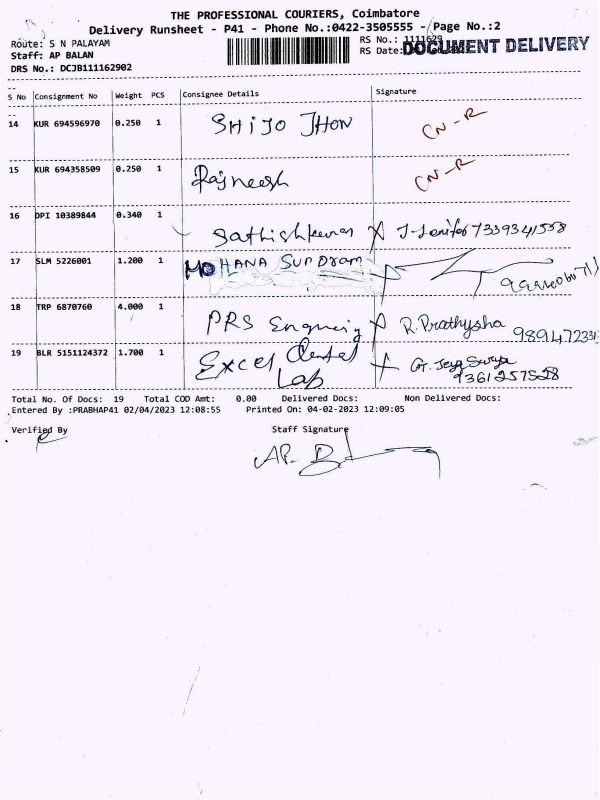 THE PROFESSIONAL COURIERS, Coimbatore
Delivery Runsheet - P41 - Phone No.:0422-3505555 - Page No.:2
Route: S N PALAYAM
RS No.: 1111629
Staff: AP BALAN
RS Date:
DOCUMENT DELIVERY
DRS No.: DCJB111162902
S No Consignment No Weight PCS Consignee Details Signature
14 KUR 694596970 0.250 1 SHIJO JHON CN-R
15 KUR 694358509 0.250 1 Rajneesh CN-R
16 DPI 10389844 0.340 1 Sathishkumar 7339341558
17 SLM 5226001 1.200 1 MOHANA SUNDRAM
18 TRP 6870760 4.000 1 PRS R. Prathysha
19 BLR 5151124372 1.700 1 Excel Dental Lab
9361257528
Total No. Of Docs: 19 Total COD Amt: 0.00 Delivered Docs: Non Delivered Docs:
Entered By :PRABHAP41 02/04/2023 12:08:55 Printed On: 04-02-2023 12:09:05
Verified By Staff Signature